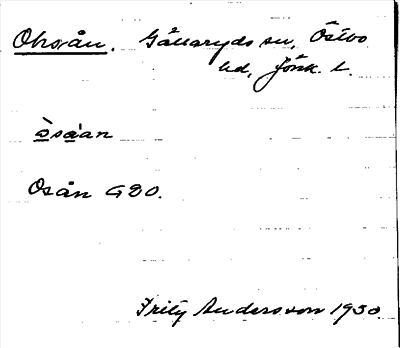 Ohsån. Gällaryds sn, Östbo
hd, Jönk. l.
òsa̍an
Osån G20.
Frity Andersson 1930.